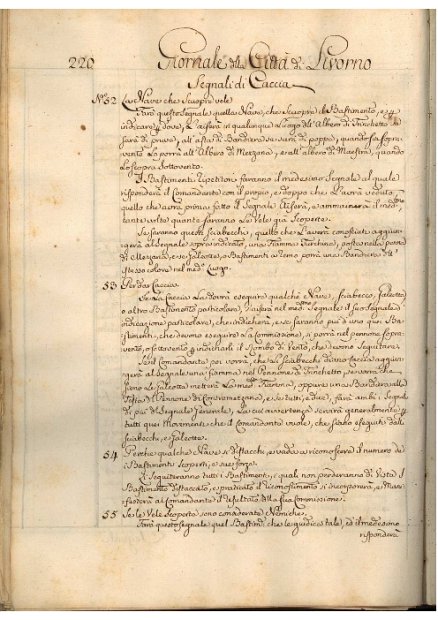 220 Giornale della Città di Livorno
Segnali di Caccia
N.º 52 La Nave che scuopre vele
Farà questo Segnale quella Nave, che scuopre il Bastimento, e per
indicare dove, L'alzerà in qualunque Luogo dell'Albero di Trinchetto
di prora, all'asta di Bandiera se sarà di poppa, quando fia sopra-
vento La porrà all'Albero di Mezzana, e all'albero di Maestra, quando
Lo scopra Sottovento.
I Bastimenti Ripetitori faranno il medesimo Segnale al quale
risponderà il Comandante con il proprio, e doppo che L'avrà veduto,
quello che avrà prima fatto il Segnale Alzerà, e ammainerà il med.º
tante volte quante saranno Le Vele già Scoperte.
Se saranno questi Sciabecchi, quello che L'averà conosciuti aggiun-
gerà al Segnale sopra ordinato, una Fiamma Turchina,
di Mezzana, e se Galeotte, o Bastimenti a remo porrà una Bandiera dello
stesso colore nel med.º Luogo.
53 Per dar Caccia
Se La Caccia La dovrà eseguire qualche Nave, Sciabecco, Galeotta
o altro Bastimento particolare, s'alzerà nel med.º Segnale il suo Segnale d'
indicazione particolare, che indicherà, e se saranno più d'uno quei Ba-
stimenti, che devono eseguire La Commissione, si porrà nel pennone Sopra-
vento, o sottovento indicherà il Rombo di Vento, che devono Seguitare.
Se il Comandante poi vorrà, che Le Sciabecchi diano Caccia aggiun-
gerà al Segnale una fiamma nel Pennone di Trinchetto, se vorrà che
siano Le Galeotte metterà La med.ª Fiamma, oppure una Bandiera alla
Testa di Pennone di Contramezzana, e se tutti, e due, farà ambi i Segnali
di più del Segnale Generale, La cui avvertenza servirà generalmente per
tutti quei Movimenti che il Comandante vuole, che siano eseguiti dalli
Sciabecchi, e Galeotte.
54 Perché qualche Nave si distacchi, e vada a riconoscere il numero de'
Bastimenti Scoperti, e sue forze.
L'eseguiranno tutti i Bastimenti, i quali non perderanno di Vista il
Bastimento distaccato, e praticato il riconoscimento si incorporerà, e Mani-
festerà al Comandante il risultato della sua Commissione.
55 Se le Vele Scoperte sono considerate Nemiche
Farà questo segnale quel Bastim.º che le giudica tale, ed il medesimo
risponderà